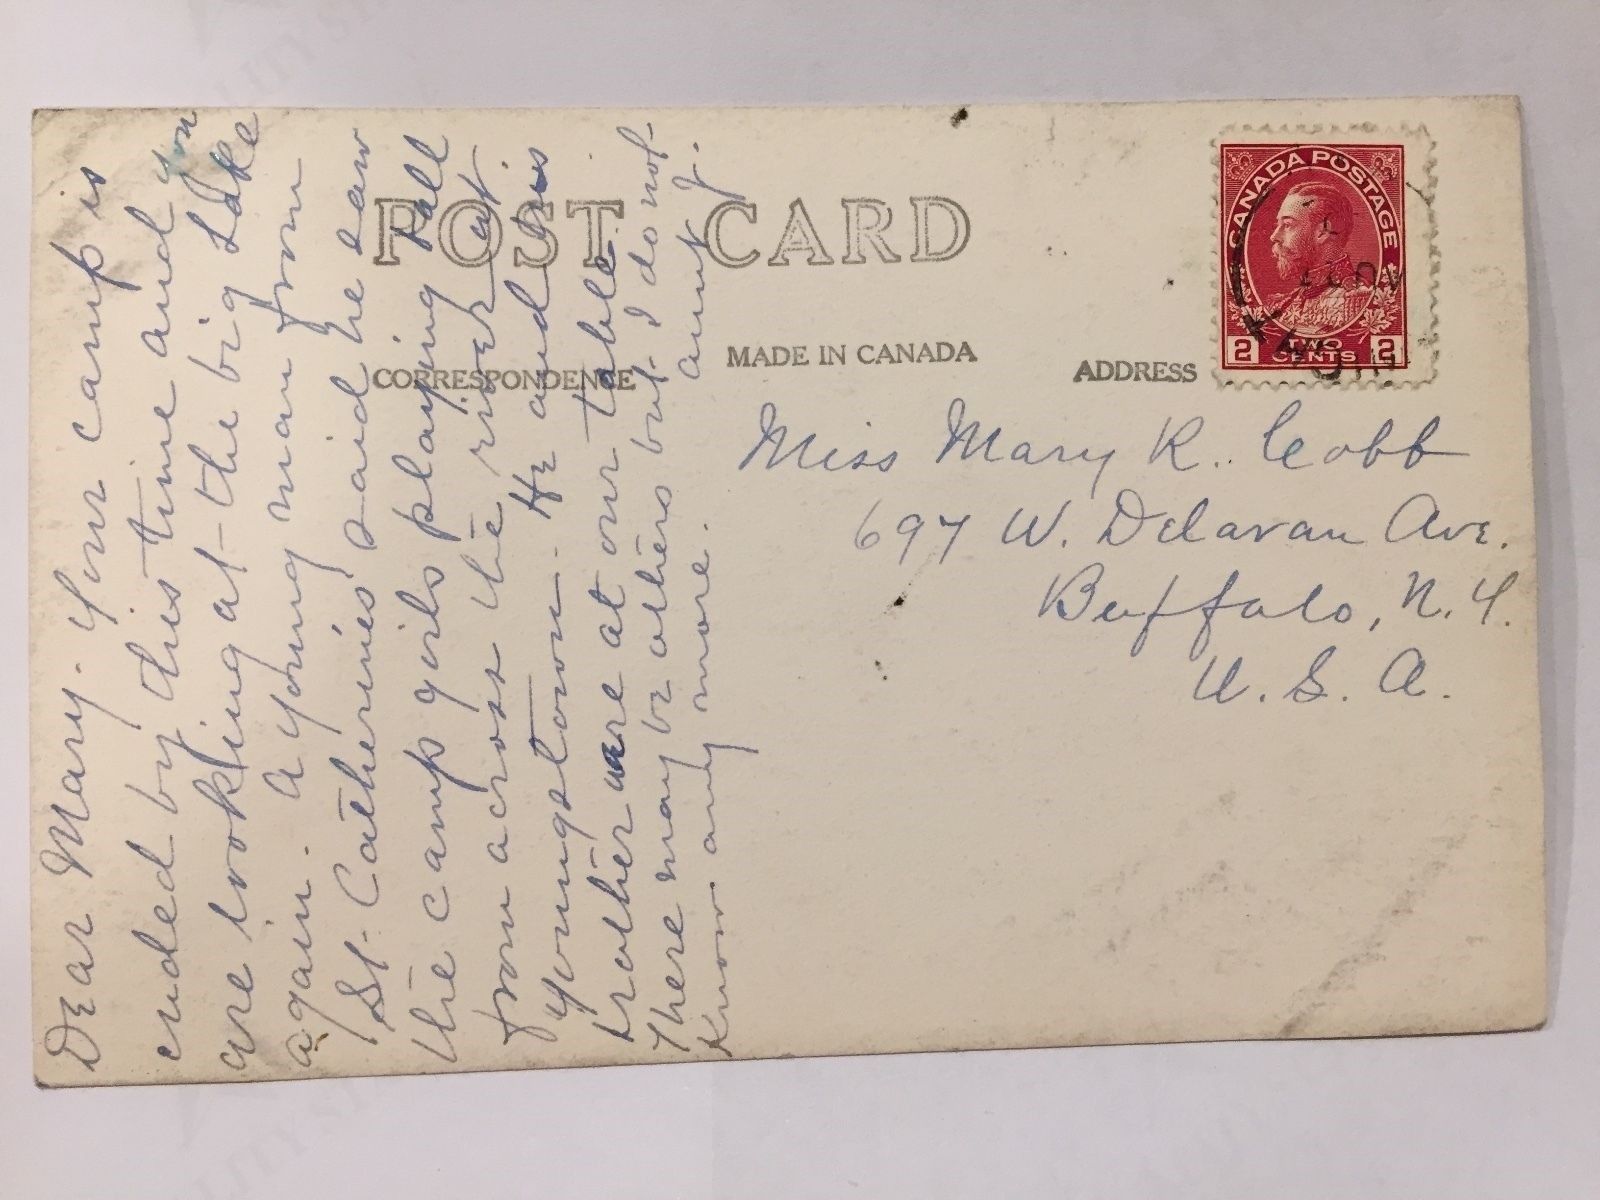 POST CARD
CORRESPONDENCE
MADE IN CANADA
ADDRESS
CANADA POSTAGE
2 TWO CENTS 2
Dear Mary. Your camp is
ended by this time and you
are looking at the big Lake
again. A young man from
St. Catherines said he saw
the camp girls playing ball
from across the river at
Youngstown. He and his
brother are at our table.
There may be others but I do not
know any more. Aunt J.
Miss Mary R. Cobb
697 W. Delavan Ave.
Buffalo, N.Y.
U.S.A.